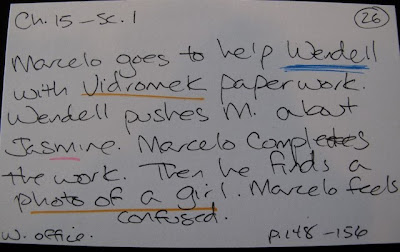 Ch. 15 - Sc. 1
26
Marcelo goes to help Wendell
with Vidromek paperwork.
Wendell pushes M. about
Jasmine. Marcelo completes
the work. Then he finds a
photo of a girl. Marcelo feels
confused.
W. office.
p. 148 - 156